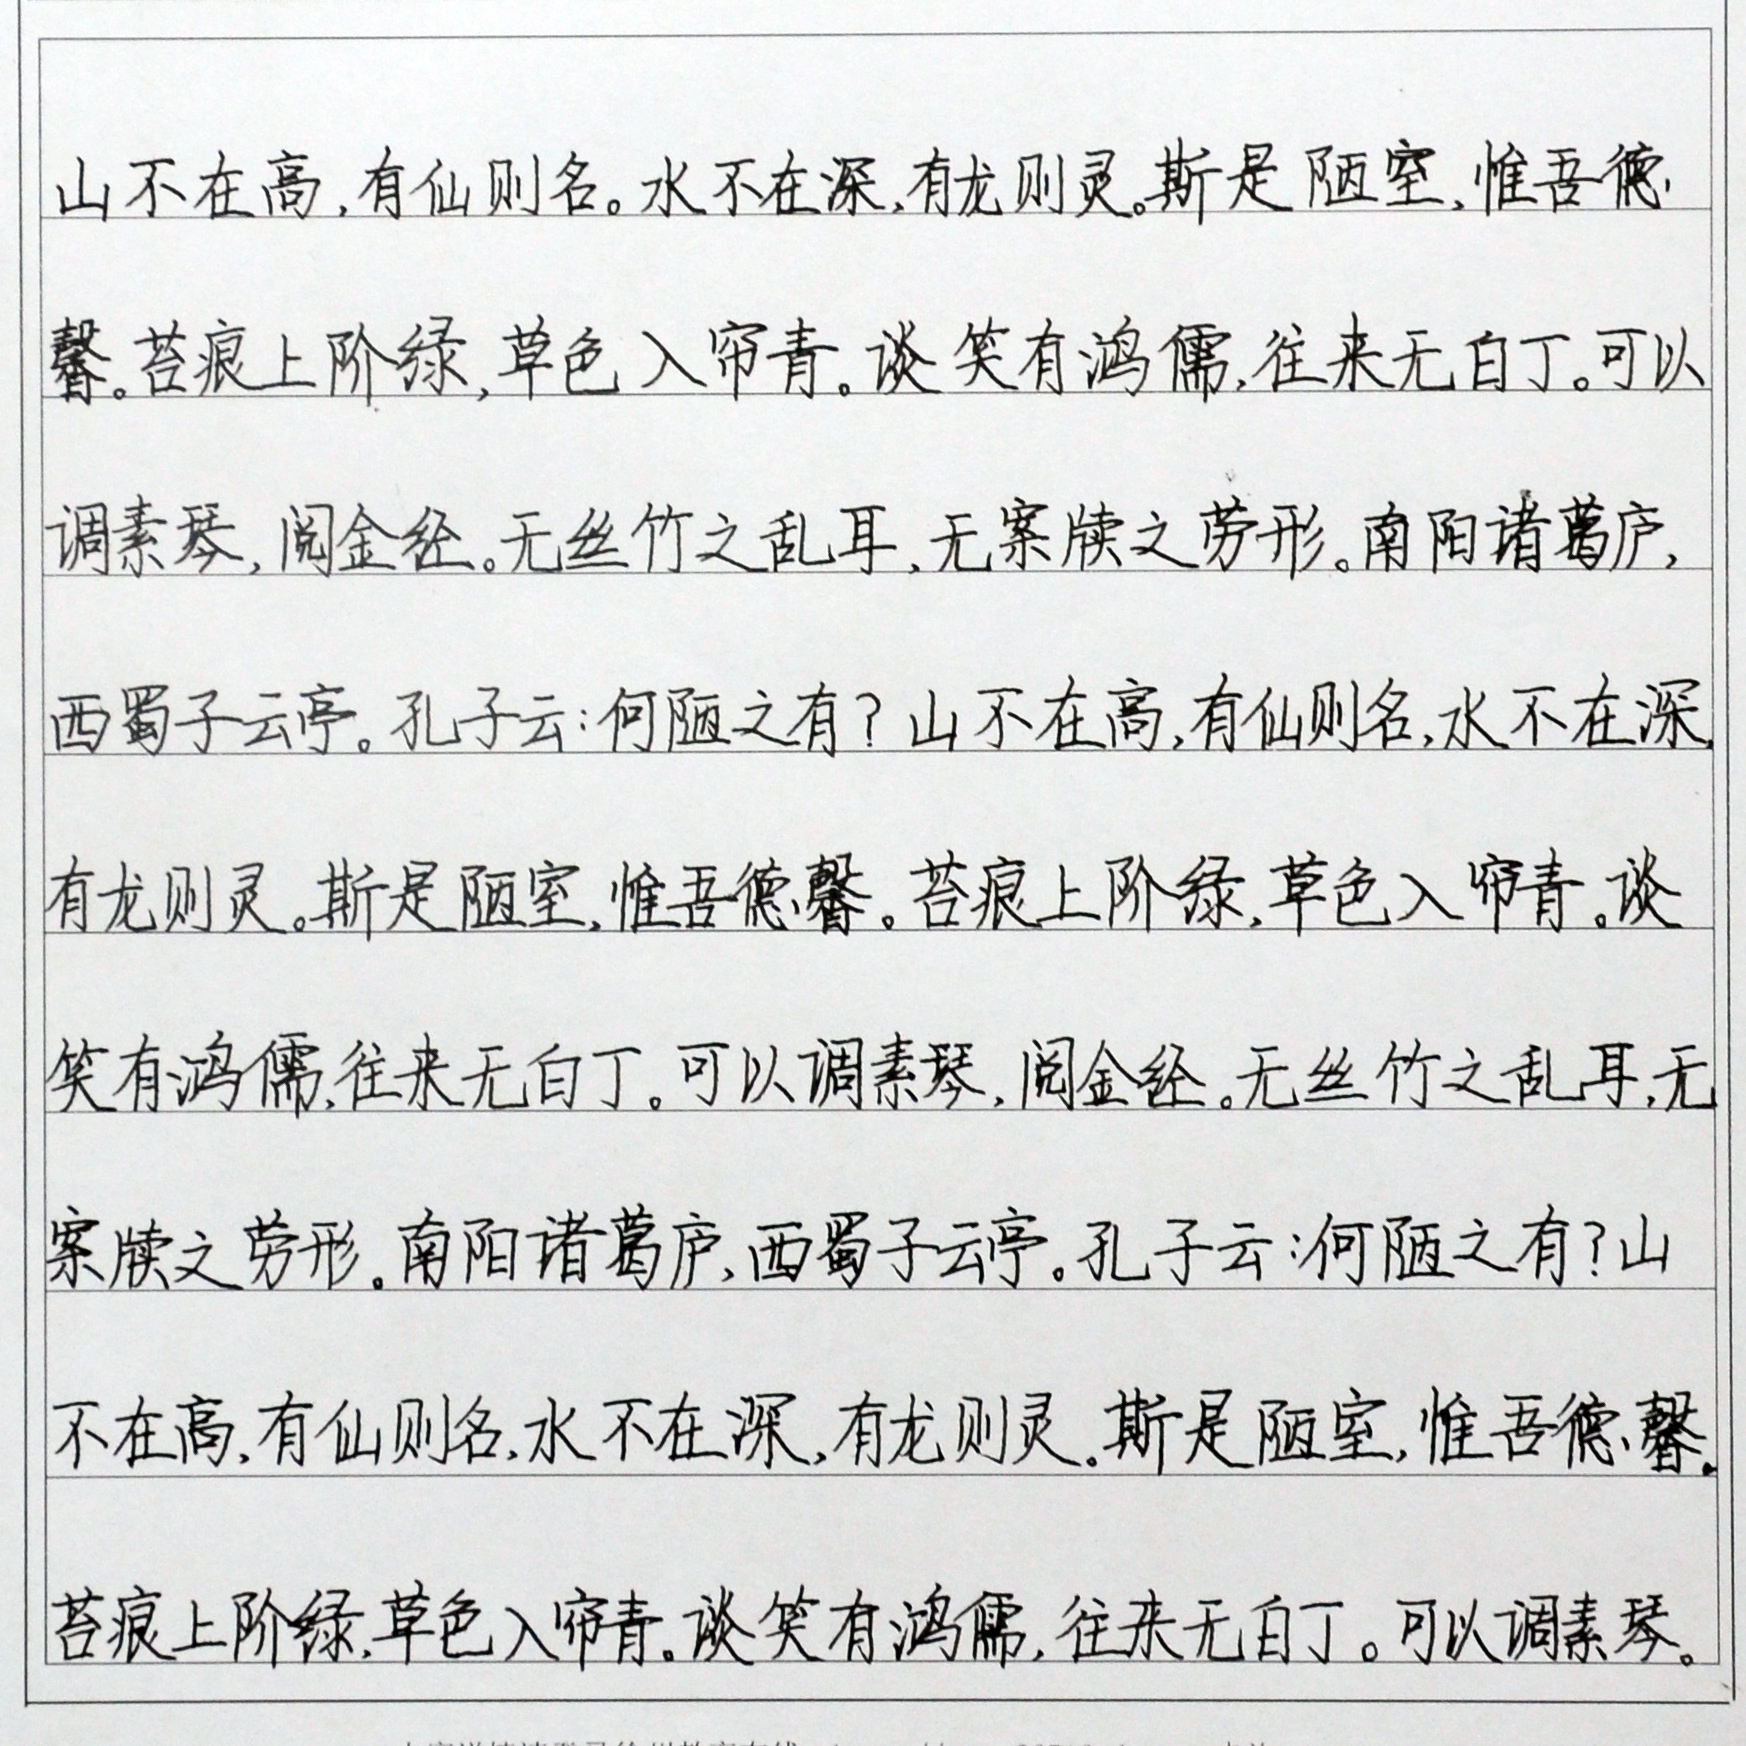 山不在高,有仙则名。水不在深,有龙则灵。斯是陋室,惟吾德
馨。苔痕上阶绿,草色入帘青。谈笑有鸿儒,往来无白丁。可以
调素琴,阅金经。无丝竹之乱耳,无案牍之劳形。南阳诸葛庐,
西蜀子云亭。孔子云:何陋之有?山不在高,有仙则名,水不在深,
有龙则灵。斯是陋室,惟吾德馨。苔痕上阶绿,草色入帘青。谈
笑有鸿儒,往来无白丁。可以调素琴,阅金经。无丝竹之乱耳,无
案牍之劳形。南阳诸葛庐,西蜀子云亭。孔子云:何陋之有?山
不在高,有仙则名,水不在深,有龙则灵。斯是陋室,惟吾德馨。
苔痕上阶绿,草色入帘青。谈笑有鸿儒,往来无白丁。可以调素琴。